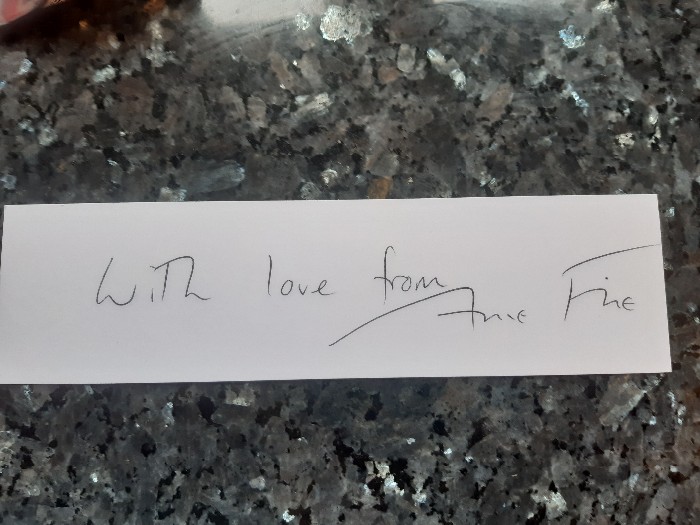 With love from
Anne Fine